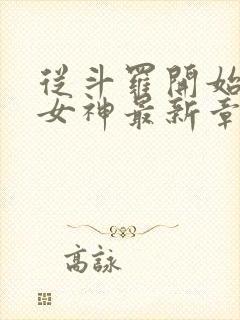 從斗羅開始
女神最新章
高詠